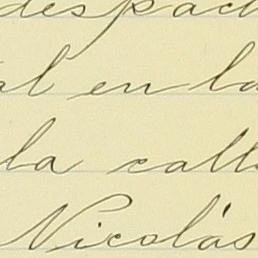 despach
al en la
la calle
Nicolás